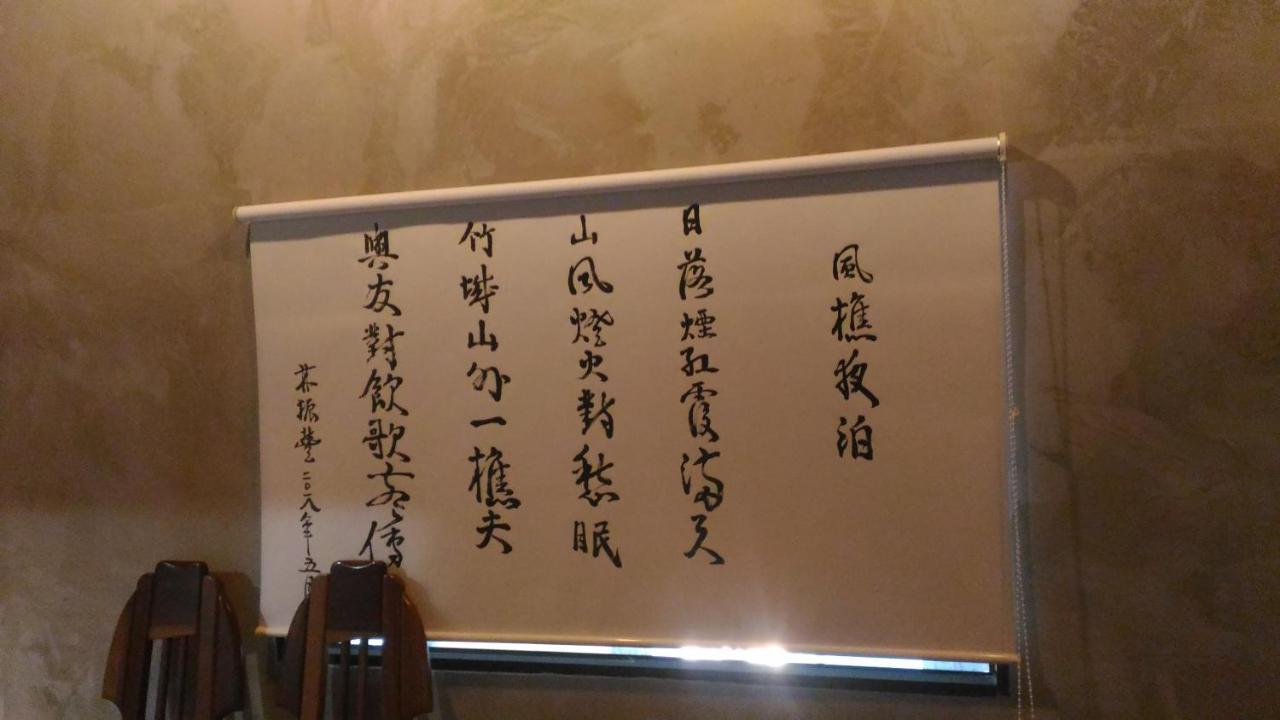 風樵夜泊
日落煙紅霞滿天
山風燈火對愁眠
竹城山外一樵夫
與友對飲歌客儔
林振豐二〇一八年五月